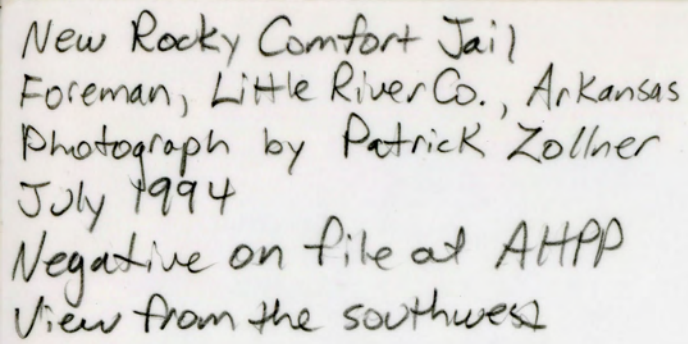 New Rocky Comfort Jail
Foreman, Little River Co., Arkansas
Photograph by Patrick Zollner
July 1994
Negative on file at AHPP
View from the southwest